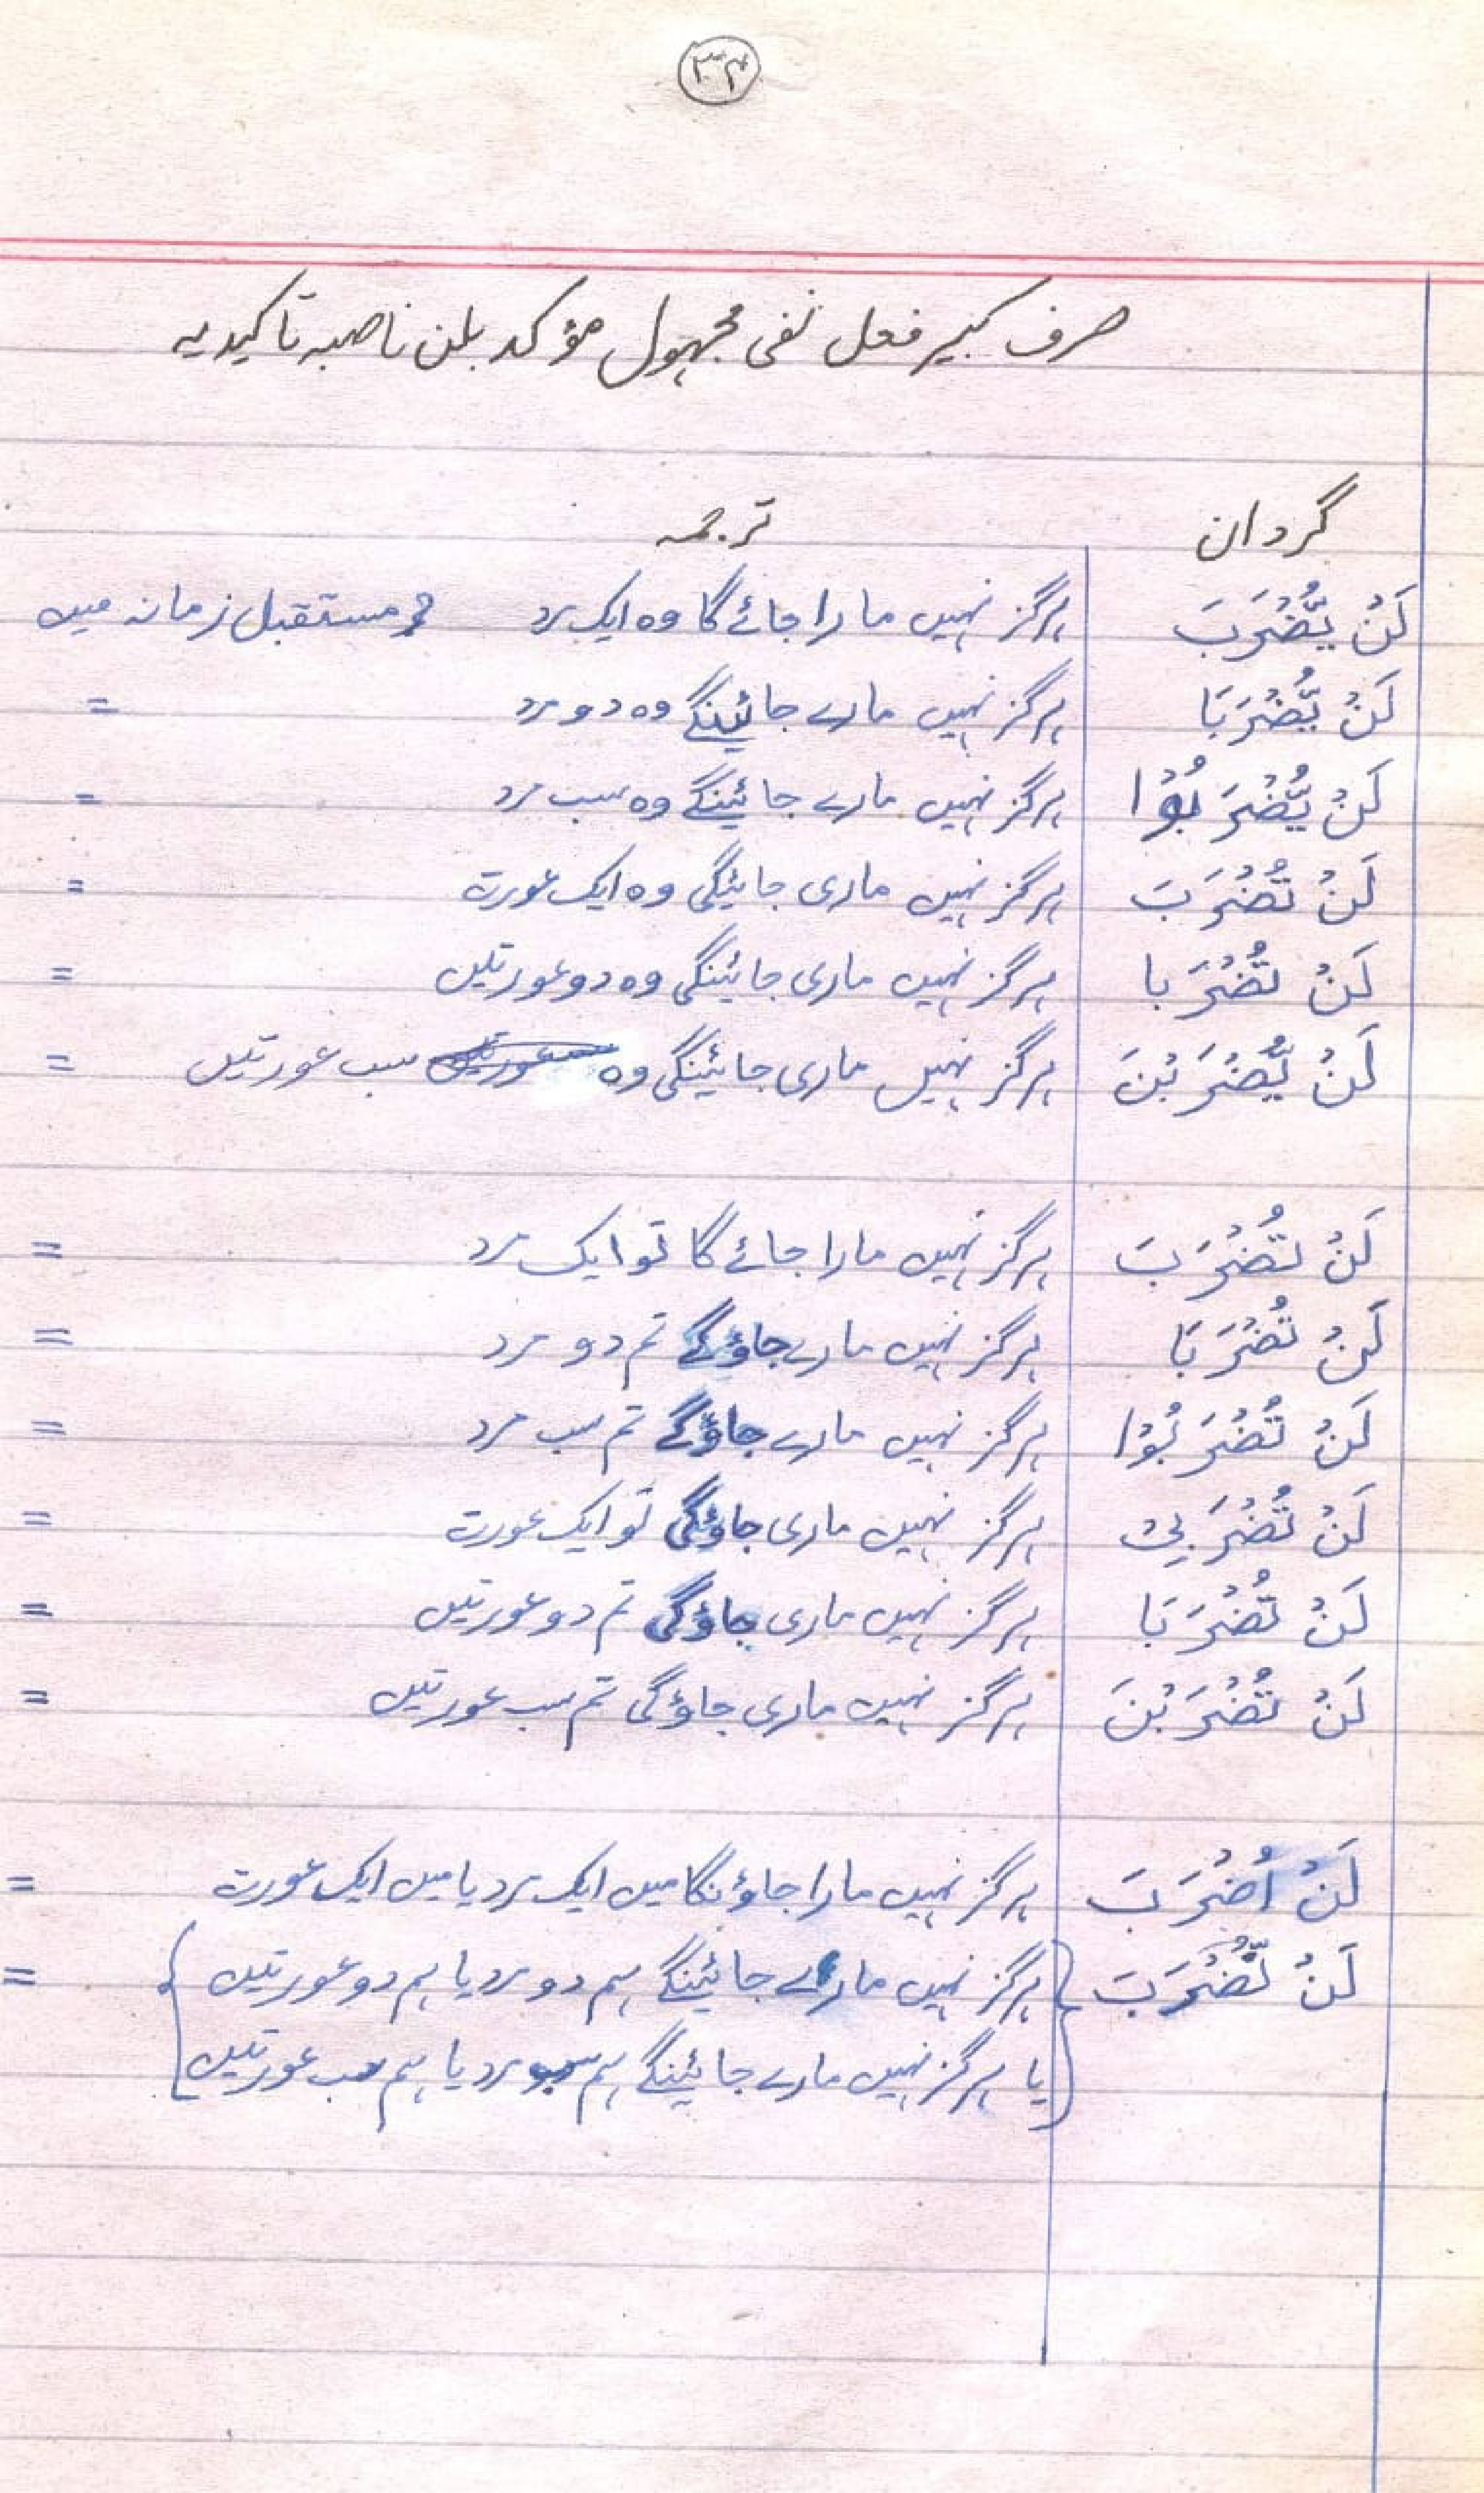 ۳۴
صرف کبیر فعل نفی مجہول مؤکد بلن ناصبہ تاکیدیہ
گردان ترجمہ
لَنْ يُّضْرَبَ ہرگز نہیں مارا جائے گا وہ ایک مرد مستقبل زمانہ میں
لَنْ يُّضْرَبَا ہرگز نہیں مارے جائینگے وہ دو مرد =
لَنْ يُّضْرَبُوْا ہرگز نہیں مارے جائینگے وہ سب مرد =
لَنْ تُضْرَبَ ہرگز نہیں ماری جائیگی وہ ایک عورت =
لَنْ تُضْرَبا ہرگز نہیں ماری جائینگی وہ دو عورتیں =
لَنْ يُّضْرَبْنَ ہرگز نہیں ماری جائینگی وہ سب عورتیں =
لَنْ تُضْرَبَ ہرگز نہیں مارا جائے گا تو ایک مرد =
لَنْ تُضْرَبَا ہرگز نہیں مارے جاؤگے تم دو مرد =
لَنْ تُضْرَبُوْا ہرگز نہیں مارے جاؤگے تم سب مرد =
لَنْ تُضْرَبِيْ ہرگز نہیں ماری جاؤگی تو ایک عورت =
لَنْ تُضْرَبَا ہرگز نہیں ماری جاؤگی تم دو عورتیں =
لَنْ تُضْرَبْنَ ہرگز نہیں ماری جاؤگی تم سب عورتیں =
لَنْ اُضْرَبَ ہرگز نہیں مارا جاؤنگا میں ایک مرد یا میں ایک عورت =
لَنْ نُّضْرَبَ ہرگز نہیں مارے جائینگے ہم دو مرد یا ہم دو عورتیں =
یا ہرگز نہیں مارے جائینگے ہم سب مرد یا ہم سب عورتیں